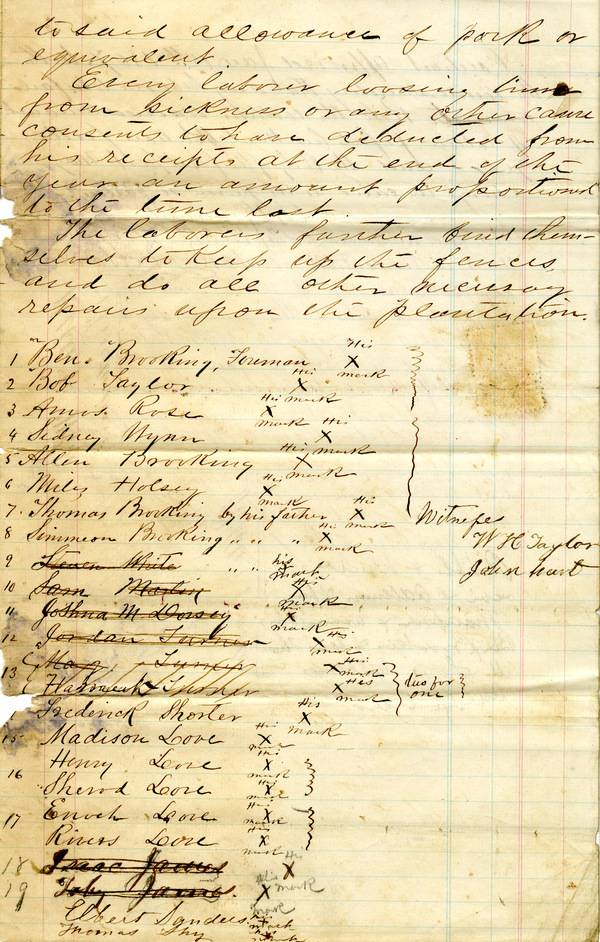 to said allowance of pork or
equivalent
Every laborer loosing time
from sickness or any other cause
consents to have deducted from
his receipts at the end of the
year an amount proportioned
to the time lost
The laborers further bind them-
selves to keep up the fences
and do all other necessary
repairs upon the plantation.
1 Ben. Brooking, Foreman His X mark
2 Bob Taylor His X mark
3 Amos Rose His X mark
4 Sidney Wynn His X mark
5 Allen Brooking His X mark
6 Miles Holsey His X mark
7. Thomas Brooking by his father His X mark
8 Simmeon Brooking " " " His X mark
Witness
W H Taylor
John Hart
9 Steven White " " his mark
10 Sam Martin His X mark
11 Joshua M Dorsey His X mark
12 Jordan Turner His X mark
13 Turner His X mark
Turner His X mark
two for
one
Frederick Shorter His X mark
15 Madison Love His X mark
16 Henry Love His X mark
Sherod Love His X mark
17 Enoch Love His X mark
Rivers Love His X mark
18 Isaac James His X mark
19 Toby James. His X mark
Elbert Sanders mark
Thomas mark